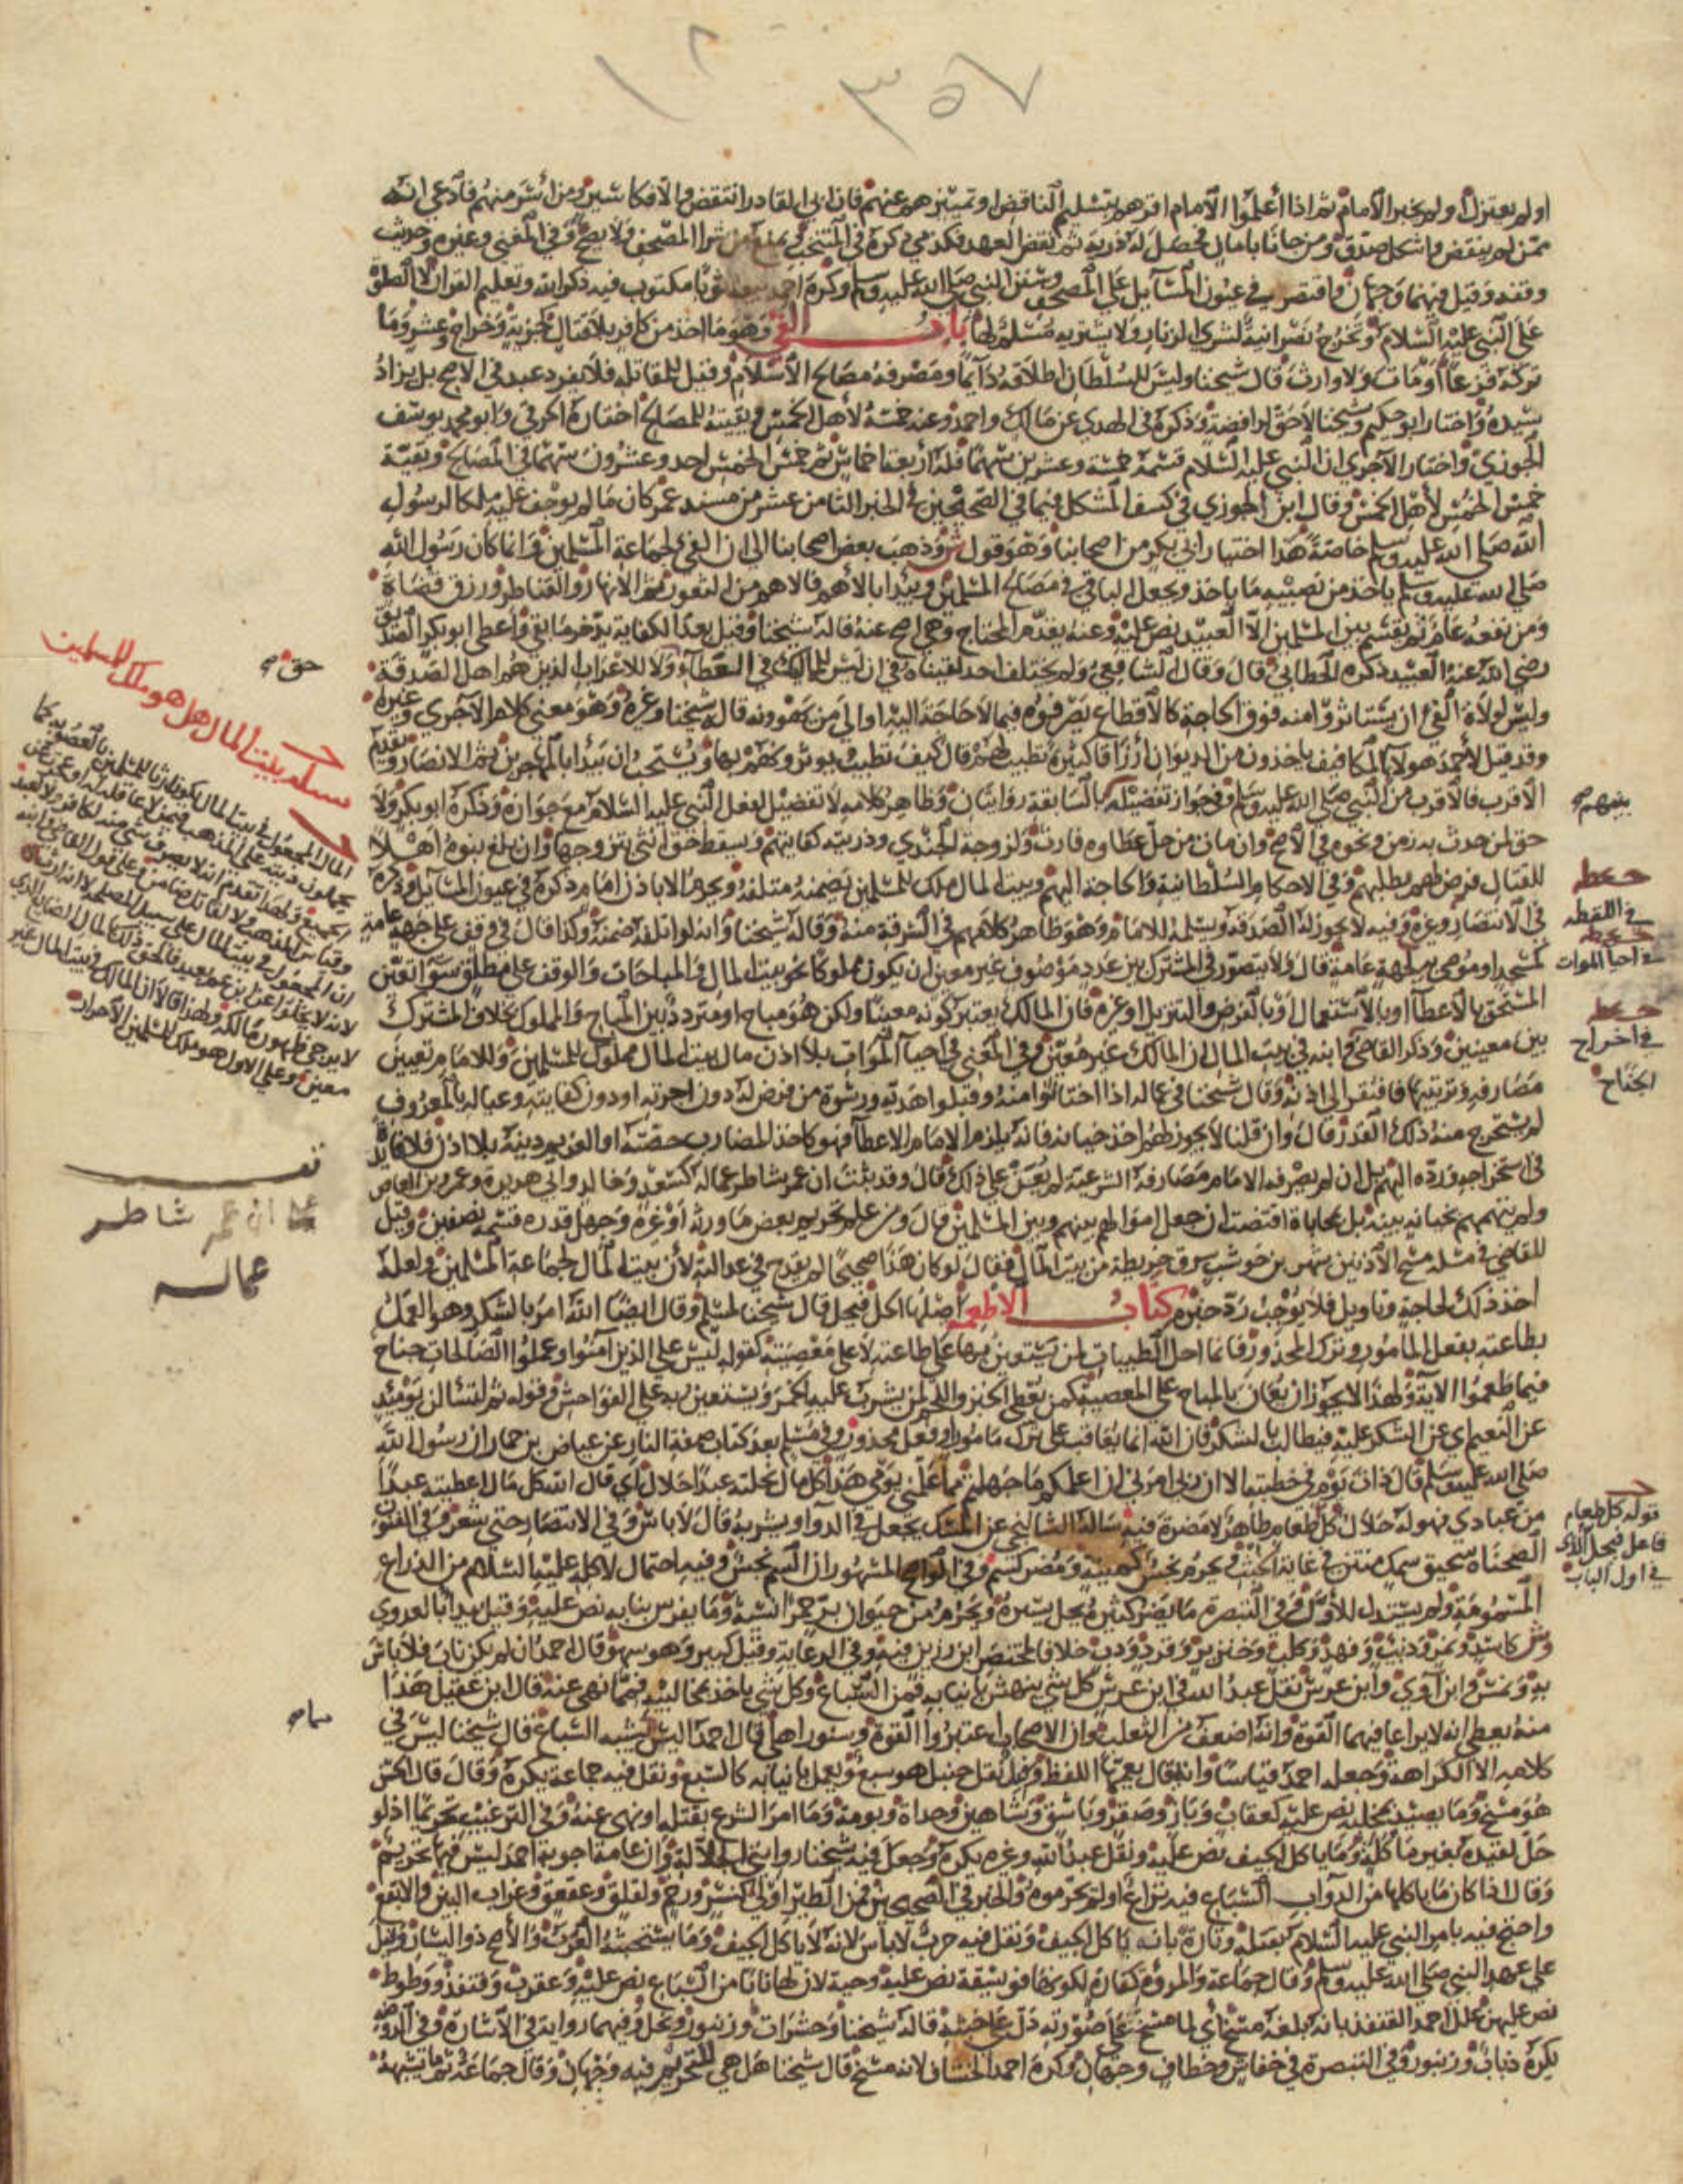 ٣٥٧
أو لم يعتزلوا ولم يخبر الإمام ثم إذا أعلموا الإمام أقرهم بتسليم الناقض أو تمييزهم عنهم فإن أبى القادر انتقض وإلا فكأسير ومن أسر منهم فادعى أنه
ممن لم ينقض وأشكل صدق ومن جاءنا بأمان فحصل له ذرية ثم نقض العهد فكذمي ذكره في المنتخب يمنع من شرا المصحف ولا يصح وفي المغني وغيره وحديث
وفقه وقيل فيهما وجهان واقتصر في عيون المسائل على المصحف وسنن النبي صلى الله عليه وسلم وكره أحمد بيعه ثوبا مكتوب فيه ذكر الله وتعليم القرآن لا الصلاة
على النبي عليه السلام وتخرج نصرانية لشرى الزنار ولا يشتريه مسلم لها باب الفي وهو ما أخذ من كافر بلا قتال كجزية وخراج وعشر وما
تركه فزعا أو مات ولا وارث قال شيخنا وليس للسلطان إطلاقه دائما ومصرفه مصالح الإسلام وقيل للمقاتلة فلا يفرد عبد في الأصح بل يزاد
سيده واختار أبو حكيم وشيخنا لا حق لرافضة وذكره في الهدي عن مالك وأحمد وعنه خمسه لأهل الخمس وبقيته للمصالح اختاره الخرقي وأبو محمد يوسف
الجوزي واختار الآجري أن النبي عليه السلام قسمه خمسة وعشرين سهما فله أربعة أخماس ثم خمس الخمس أحد وعشرون سهما في المصالح وبقية
خمس الخمس لأهل الخمس وقال ابن الجوزي في كشف المشكل فيما في الصحيحين في الخبر الثامن عشر من مسند عمر كان ما لم يوجف عليه ملكا لرسول
الله صلى الله عليه وسلم خاصة هذا اختيار أبي بكر من أصحابنا وهو قول ش وذهب بعض أصحابنا إلى أن الفي لجماعة المسلمين وإنما كان رسول الله
صلى الله عليه وسلم يأخذ من نصيبه ما يأخذ ويجعل الباقي في مصالح المسلمين ويبدأ بالأهم فالأهم من الثغور ثم الأنهار والقناطر ورزق قضاة
ومن نفعه عام ثم يقسم بين المسلمين إلا العبيد نص عليه وعنه يقدم المحتاج وهي أصح عنه قاله شيخنا وقيل بعد الكفاية يدخر ما بقي وأعطى أبو بكر الصديق
رضي الله عنه العبيد ذكره الخطابي قال وقال الشافعي ولم يختلف أحد لقيناه في أن ليس للمماليك في العطاء ولا للأعراب الذين هم أهل الصدقة
وليس لولاة الفي أن يستأثروا منه فوق الحاجة كالإقطاع يصرفونه فيما لا حاجة إليه أو إلى من يهوونه قاله شيخنا وغيره وهو معنى كلام الآجري وغيره
وقد قيل لأحمد هؤلاء المكافيف يأخذون من الديوان أرزاقا كثيرة تطيب لهم قال كيف تطيب يوثرونهم بها ويستحب أن يبدأ بالمهاجرين ثم الأنصار وتقدم
الأقرب فالأقرب من النبي صلى الله عليه وسلم وفي جواز تفضيله بالسابقة روايتان وظاهر كلامه لا تفضيل لفعل النبي عليه السلام مع جوازه وذكره أبو بكر ولا
حق لمن حدث به زمن ونحوه في الأصح وإن مات من حل عطاؤه فإرث ولزوجة الجندي وذريته كفايتهم ويسقط حق أنثى بتزوجها وإن بلغ بنوه أهلا
للقتال فرض لهم بطلبهم وفي الأحكام السلطانية والحاجة إليهم وبيت المال ملك للمسلمين يضمنه متلفه ويحرم إلا بإذن إمام ذكره في عيون المسائل وذكره
في الانتصار وغيره وفيه لا يجوز له الصدقة ويسلمه للإمام وهو ظاهر كلامهم في السرقة منه وقاله شيخنا وأنه لو أتلفه ضمنه وكذا قال في وقف على جهة عامة
كمسجد أو موصى به لجهة عامة قال ولا يتصور في المشترك بين عدد موصوف غير معين أن يكون مملوكا نحو بيت المال في المباحات والوقف على مطلق سوا تعين
المستحق بالإعطا أو بالاستعمال أو بالفرض والتنزيل أو غيره فإن المالك يعتبر كونه معينا ولكن هو مباح أو متردد بين المباح والمملوك بخلاف المشترك
بين معينين وذكر القاضي وابنه في بيت المال أن المالك غير معين وفي المغني في إحيا الموات بلا إذن مال بيت المال مملوك للمسلمين وللإمام تعيين
مصارفه وترتيبها فافتقر إلى إذنه وقال شيخنا في عماله إذا اختانوا منه وقبلوا هدية ورشوة من فرض له دون أجرته أو دون كفايته وعياله بالمعروف
لم يستخرج منه ذلك القدر قال وإن قلنا لا يجوز لهم أخذ خيانة فإنه يلزم الإمام الإعطا فهو كأخذ المضارب حصته أو الغريم دينه بلا إذن فلا فائدة
في استخراجه ورده إليهم بل إن لم يصرفه الإمام مصارفه الشرعية لم يعن على ذلك قال وقد ثبت أن عمر شاطر عماله كسعد وخالد وأبي هريرة وعمرو بن العاص
ولم يتهمهم بخيانة بينة بل بمحاباة اقتضت أن جعل أموالهم بينهم وبين المسلمين قال ومن علم تحريم بعض ما ورثه أو غيره وجهل قدره قسمه نصفين وقيل
للقاضي في مسألة مسح الأذنين شهر بن حوشب سرق خريطة من بيت المال فقال لو كان هذا صحيحا لم يقدح في عدالته لأن بيت المال لجماعة المسلمين ولعله
أخذ ذلك لحاجة وتأويل فلا يوجب رد خبره كتاب الأطعمة أصلها الحل فيحل قال شيخنا لمسلم وقال أيضا الله أمر بالشكر وهو العمل
بطاعته بفعل المأمور وترك المحذور فإنما أحل الطيبات لمن يستعين بها على طاعته لا على معصيته كقوله ليس على الذين آمنوا وعملوا الصالحات جناح
فيما طعموا الآية ولهذا لا يجوز أن يعان بالمباح على المعصية كمن يعطي الخبز واللحم لمن يشرب عليه الخمر ويستعين به على الفواحش وقوله ثم لتسألن يومئذ
عن النعيم أي عن الشكر عليه فيطالب بالشكر فإن الله إنما يعاقب على ترك مأمور أو فعل محذور وفي مسلم بعد كتاب صفة النار عن عياض بن حمار أن رسول الله
صلى الله عليه وسلم قال ذات يوم في خطبته ألا إن ربي أمرني أن أعلمكم ما جهلتم مما علمني يومي هذا كل مال نحلته عبدا حلال أي قال الله كل مال أعطيته عبدا
من عبادي فهو له حلال كل طعام طاهر لا مضرة فيه سأله الشالنجي عن المسك يجعل في الدوا ويشربه قال لا بأس وفي الانتصار حتى شعر وفي الفنون
الصحناة سحيق سمك منتن في غاية الخبث ويحرم نجس كميتة ومضر كسم وفي الواضح المشهور أن السم نجس وفيه احتمال لأكله عليه السلام من الذراع
المسمومة ولم يستدل للأول وفي التبصرة ما يضر كثيره يحل يسيره ويحرم من حيوان بر حمر إنسية وما يفرس بنابه نص عليه وقيل يبدأ بالعدوى
وش كأسد ونمر وذئب وفهد وكلب وخنزير وقرد ودب خلافا لمختصر ابن رزين فيه وفي الرعاية وقيل كبير وهو سهو قال أحمد إن لم يكن ناب فلا بأس
به ونمس وابن آوى وابن عرس نقل عبد الله في ابن عرس كل شي ينهش بأنيابه فمن السباع وكل شي يأخذ بمخالبه فمما نهي عنه قال ابن عقيل هذا
منه يعطي أنه لا يراعى فيهما القوة وأنه أضعف من الثعلب وإن الأصحاب اعتبروا القوة وسنور أهلي قال أحمد أليس يشبه السباع قال شيخنا ليس في
كلامه إلا الكراهة وجعله أحمد قياسا وأنه قال يعمها اللفظ وفيه نقل حنبل هو سبع ويعمل بأنيابه كالسبع ونقل فيه جماعة يكره وقال قال الحسن
هو مسخ وما يصيد بمخلبه نص عليه كعقاب وباز وصقر وباشق وشاهين وحداة وبومة وما أمر الشرع بقتله أو نهى عنه وفي الترغيب تحريما إذ لو
حل لقيده بغير مأكلة وما يأكل الجيف نص عليه ونقل عبد الله وغيره يكره وجعل فيه شيخنا روايتي الجلالة وأن عامة أجوبة أحمد ليس فيها تحريم
وقال إذا كان ما يأكلها من الدواب السباع فيه نزاع أو لم يحرموه والخبر في الصحيحين فمن الطير أولى كنسر ورخم ولقلق وعقعق وغراب البين والأبقع
واحتج فيه بأمر النبي عليه السلام بقتله وتارة بأنه يأكل الجيف ونقل فيه حرب لا بأس لأنه لا يأكل الجيف وما يستخبثه العرب والأصح ذو اليسار وقيل
على عهد النبي صلى الله عليه وسلم وقال جماعة والمروة كفأرة لكونها فويسقة نص عليه وحية لأن لها نابا من السباع نص عليه وعقرب وقنفذ ووطوط
نص عليهن علل أحمد القنفذ بأنه بلغه مسخ أي لما مسخ على صورته دل على خبثه قاله شيخنا وحشرات وزنبور ونحل وفيهما رواية في الإشارة وفي الروضة
يكره ذباب وزنبور وفي التبصرة في خفاش وخطاف وجهان وكره أحمد الخشاف لأنه مسخ قال شيخنا هل هي للتحريم فيه وجهان وقال جماعة ثم ما يشبهه
حق
مسألة بيت المال هل هو ملك للمسلمين
عمر شاطر
عماله
بينهم
في اللقطة
في احيا الموات
في اخراج
الجناح
قوله كل طعام
فاعل فيحل الذي
في أول الباب